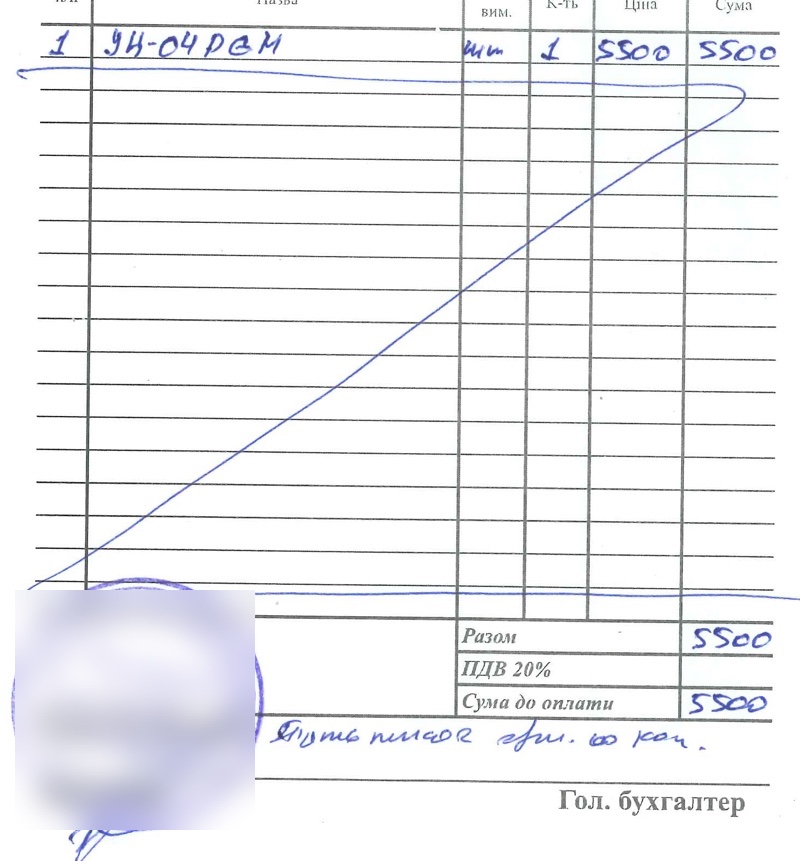 Назва вим. К-ть Ціна Сума
1 УН-04 РGМ шт 1 5500 5500
Разом 5500
ПДВ 20%
Сума до оплати 5500
грн. 00 коп.
Гол. бухгалтер